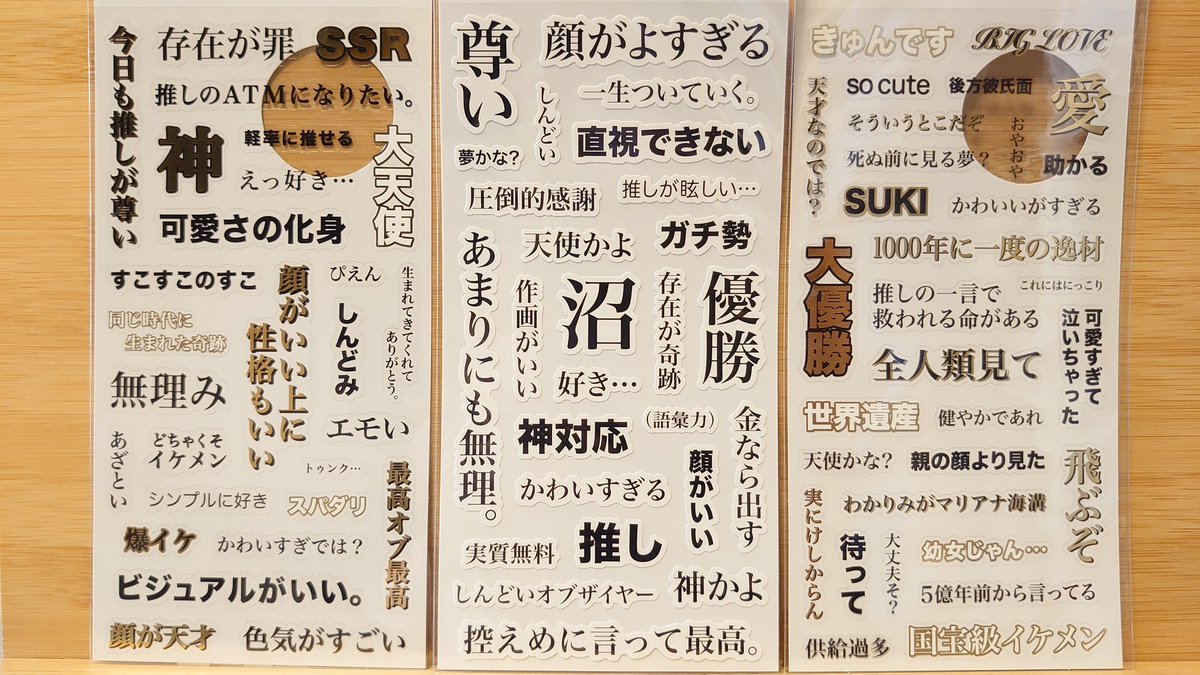 今日も推しが尊い
存在が罪
SSR
推しのATMになりたい。
神
軽率に推せる
大天使
えっ好き…
可愛さの化身
すこすこのすこ
顔がいい上に
性格もいい
ぴえん
生まれてきてくれて
ありがとう。
しんどみ
同じ時代に
生まれた奇跡
無理み
エモい
あざとい
どちゃくそ
イケメン
トゥンク…
最高オブ最高
シンプルに好き
スパダリ
爆イケ
かわいすぎでは？
ビジュアルがいい。
顔が天才
色気がすごい
尊い
顔がよすぎる
しんどい
一生ついていく。
直視できない
夢かな？
圧倒的感謝
推しが眩しい…
あまりにも無理。
天使かよ
ガチ勢
作画がいい
沼
存在が奇跡
優勝
好き…
神対応
（語彙力）
金なら出す
顔がいい
かわいすぎる
実質無料
推し
しんどいオブザイヤー
神かよ
控えめに言って最高。
きゅんです
BIG LOVE
天才なのでは？
so cute
後方彼氏面
愛
そういうとこだぞ
おやおや
死ぬ前に見る夢？
助かる
SUKI
かわいいがすぎる
大優勝
1000年に一度の逸材
推しの一言で
救われる命がある
これにはにっこり
可愛すぎて
泣いちゃった
全人類見て
世界遺産
健やかであれ
天使かな？
親の顔より見た
飛ぶぞ
実にけしからん
わかりみがマリアナ海溝
待って
大丈夫そ？
幼女じゃん…
5億年前から言ってる
供給過多
国宝級イケメン